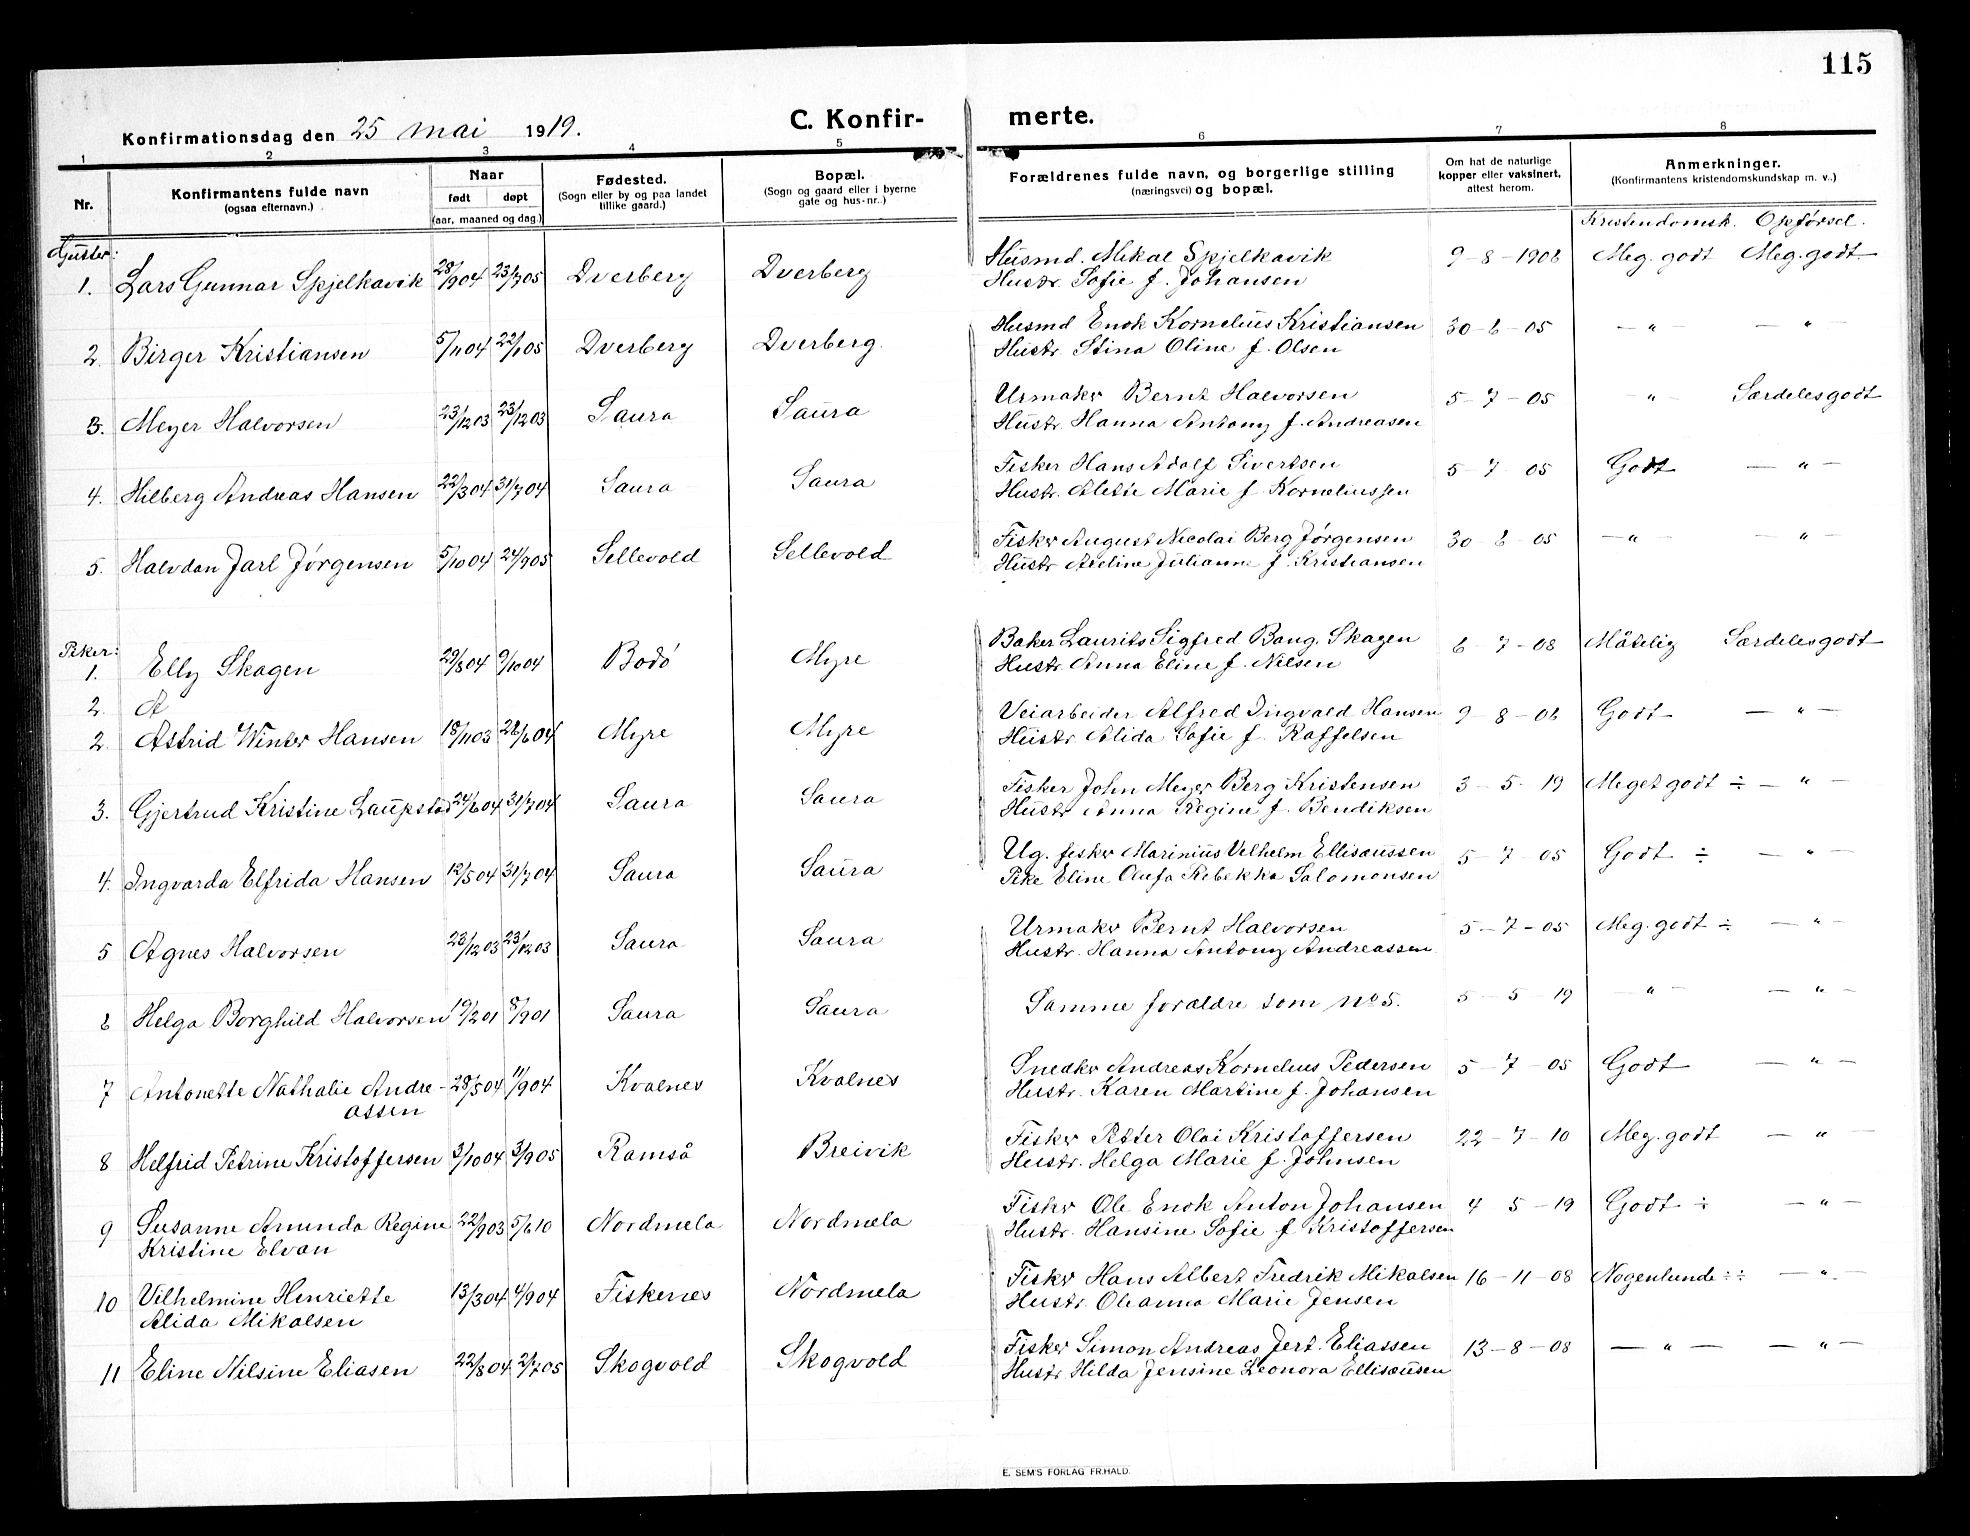 115
Konfirmationsdag den 25 mai 1919.
C. Konfirmerte.
1 2 3 4 5 6 7 8
Nr.
Konfirmantens fulde navn
(ogsaa efternavn.)
Naar
født døpt
(aar, maaned og dag.)
Fødested.
(Sogn eller by og paa landet
tillike gaard.)
Bopæl.
(Sogn og gaard eller i byerne
gate og hus-nr.)
Forældrenes fulde navn, og borgerlige stilling
(næringsvei) og bopæl.
Om hat de naturlige
kopper eller vaksinert,
attest herom.
Anmerkninger.
(Konfirmantens kristendomskundskap m. v.)
Kristendomsk. Opførsel.
Gutter:
1. Lars Gunnar Spjelkavik 28/9 04 23/7 05 Dverberg Dverberg Husmd. Mikal Spjelkavik 9-8-1906 Meg. godt Meg. godt
Hustr. Sofie f. Johansen
2. Birger Kristiansen 5/11 04 22/1 05 Dverberg Dverberg. Husmd Enok Kornelius Kristiansen 30-6-05 -"- -"-
Hustr. Stina Oline f. Olsen
3. Meyer Halvorsen 23/12 03 23/12 03 Saura Saura Urmaker Bernt Halvorsen 5-7-05 -"- Særdeles godt
Hustr. Hanna Antony f. Andreasen
4. Hilberg Andreas Hansen 22/3 04 31/7 04 Saura Saura Fisker Hans Adolf Sivertsen 5-7-05 Godt -"-
Hustr. Alette Marie f. Korneliussen
5. Halvdan Jarl Jørgensen 5/10 04 24/9 05 Sellevold Sellevold Fisker August Nicolai Berg Jørgensen 30-6-05 -"- -"-
Hustr Adeline Julianne f. Kristiansen
Piker:
1. Elly Skagen 29/8 04 9/10 04 Bodø Myre Baker Laurits Sigfred Bang. Skagen 6-7-08 Måtelig Særdeles godt
Hustr. Anna Eline f. Nilsen
2. A
2. Astrid Winter Hansen 18/11 03 26/6 04 Myre Myre Veiarbeider Alfred Ingvald Hansen 9-8-06 Godt -"-
Hustr Alida Sofie f. Raffelsen
3. Gjertrud Kristine Laupstad 24/6 04 31/7 04 Saura Saura Fisker John Meyer Berg Kristensen 3-5-19 Meget godt ÷ -"-
Hustr. Anna Regine f. Bendiksen
4. Ingvarda Elfrida Hansen 12/5 04 31/7 04 Saura Saura Ug. fisker Marinius Vilhelm Ellisæussen 5-7-05 Godt ÷ -"-
Pike Eline Olufa Rebekka Salomonsen
5 Agnes Halvorsen 23/12 03 23/12 03 Saura Saura Urmaker Bernt Halvorsen 5-7-05 Meg. godt ÷ -"-
Hustr. Hanna Antony Andreassen
6 Helga Borghild Halvorsen 19/2 01 8/9 01 Saura Saura Samme forældre som no 5. 5-5-19 -"- -"-
7 Antonette Nathalie Andre- 28/5 04 11/9 04 Kvalnes Kvalnes Snedker Andreas Kornelius Pedersen 5-7-05 Godt -"-
assen Hustr. Karen Martine f. Johansen
8 Helfrid Petrine Kristoffersen 3/10 04 3/9 05 Ramså Breivik Fisker Petter Olai Kristoffersen 22-7-10 Meg. godt -"-
Hustr. Helga Marie f. Johnsen
9 Susanne Amunda Regine 22/9 03 5/6 10 Nordmela Nordmela Fisker Ole Enok Anton Johansen 4-5-19 Godt ÷ -"-
Kristine Elvan Hustr. Hansine Sofie f Kristoffersen
10 Vilhelmine Henriette 13/3 04 4/9 04 Fiskenes Nordmela Fisker Hans Albert Fredrik Mikalsen 16-11-08 Nogenlunde ÷÷ -"-
Alida Mikalsen Hustr. Oleanna Marie Jensen
11 Eline Nilsine Eliasen 22/8 04 2/7 05 Skogvold Skogvold Fisker Simon Andreas Jert. Eliassen 13-8-08 -"- -"-
Hustr. Hilda Jensine Leonora Ellisæusen
E. SEM'S FORLAG FR.HALD.